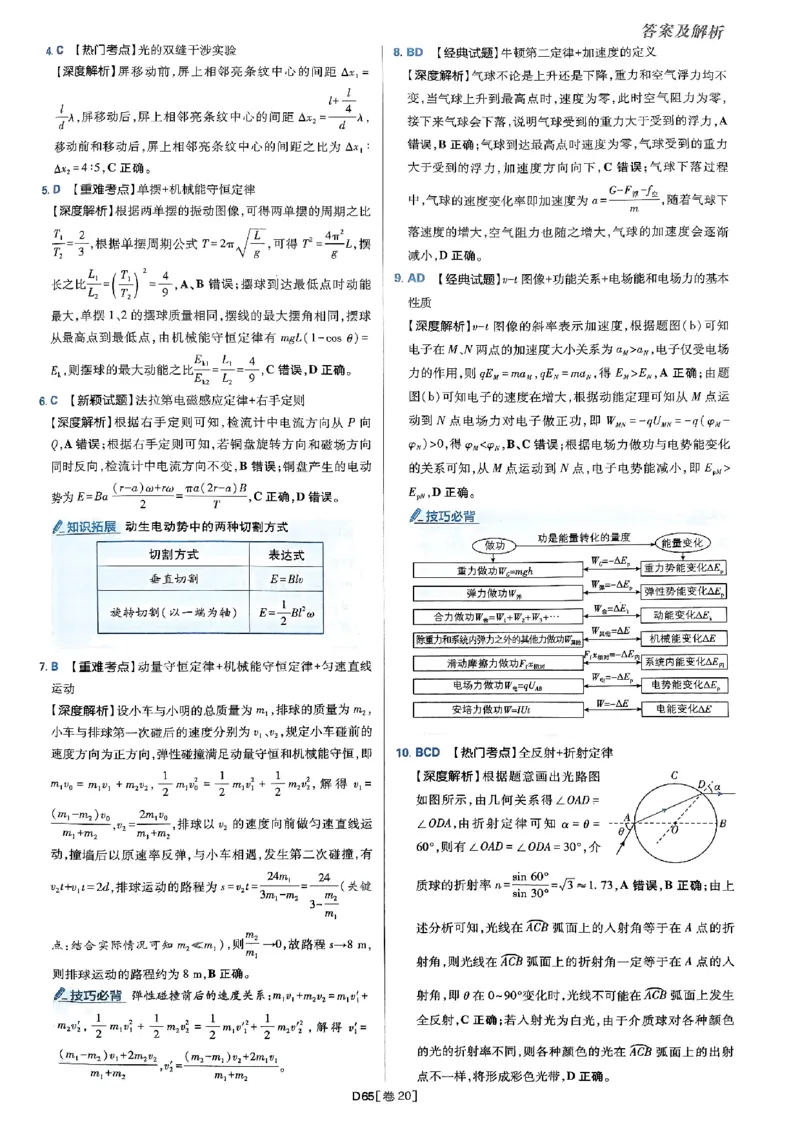 答案及解析
4.C 【热门考点】光的双缝干涉实验
【深度解析】屏移动前,屏上相邻亮条纹中心的间距 Δx₁=
l/d λ,屏移动后,屏上相邻亮条纹中心的间距 Δx₂=(l+l/4)/d λ,
移动前和移动后,屏上相邻亮条纹中心的间距之比为 Δx₁:
Δx₂=4:5,C 正确。
5.D 【重难考点】单摆+机械能守恒定律
【深度解析】根据两单摆的振动图像,可得两单摆的周期之比
T₁/T₂=2/3,根据单摆周期公式 T=2π√(L/g),可得 T²=4π²/g L,摆
长之比L₁/L₂=(T₁/T₂)²=4/9,A、B 错误;摆球到达最低点时动能
最大,单摆 1、2 的摆球质量相同,摆线的最大摆角相同,摆球
从最高点到最低点,由机械能守恒定律有 mgL(1-cos θ)=
Eₖ,则摆球的最大动能之比Eₖ₁/Eₖ₂=L₁/L₂=4/9,C 错误,D 正确。
6.C 【新颖试题】法拉第电磁感应定律+右手定则
【深度解析】根据右手定则可知,检流计中电流方向从 P 向
Q,A 错误;根据右手定则可知,若铜盘旋转方向和磁场方向
同时反向,检流计中电流方向不变,B 错误;铜盘产生的电动
势为 E=Ba ((r-a)ω+rω)/2=πa(2r-a)B/T,C 正确,D 错误。
知识拓展 动生电动势中的两种切割方式
切割方式 表达式
垂直切割 E=Blv
旋转切割(以一端为轴) E=1/2 Bl²ω
7.B 【重难考点】动量守恒定律+机械能守恒定律+匀速直线
运动
【深度解析】设小车与小明的总质量为 m₁,排球的质量为 m₂,
小车与排球第一次碰后的速度分别为 v₁、v₂,规定小车碰前的
速度方向为正方向,弹性碰撞满足动量守恒和机械能守恒,即
m₁v₀=m₁v₁+m₂v₂,1/2 m₁v₀²=1/2 m₁v₁²+1/2 m₂v₂²,解得 v₁=
(m₁-m₂)v₀/(m₁+m₂),v₂=2m₁v₀/(m₁+m₂),排球以 v₂ 的速度向前做匀速直线运
动,撞墙后以原速率反弹,与小车相遇,发生第二次碰撞,有
v₂t+v₁t=2d,排球运动的路程为 s=v₂t=24m₁/(3m₁-m₂)=24/(3-m₂/m₁)(关键
点:结合实际情况可知 m₂≪m₁),则m₂/m₁→0,故路程 s→8 m,
则排球运动的路程约为 8 m,B 正确。
技巧必背 弹性碰撞前后的速度关系:m₁v₁+m₂v₂=m₁v₁′+
m₂v₂′,1/2 m₁v₁²+1/2 m₂v₂²=1/2 m₁v₁′²+1/2 m₂v₂′²,解得 v₁′=
((m₁-m₂)v₁+2m₂v₂)/(m₁+m₂),v₂′=((m₂-m₁)v₂+2m₁v₁)/(m₁+m₂)。
8.BD 【经典试题】牛顿第二定律+加速度的定义
【深度解析】气球不论是上升还是下降,重力和空气浮力均不
变,当气球上升到最高点时,速度为零,此时空气阻力为零,
接下来气球会下落,说明气球受到的重力大于受到的浮力,A
错误,B 正确;气球到达最高点时速度为零,气球受到的重力
大于受到的浮力,加速度方向向下,C 错误;气球下落过程
中,气球的速度变化率即加速度为 a=(G-F浮-f空)/m,随着气球下
落速度的增大,空气阻力也随之增大,气球的加速度会逐渐
减小,D 正确。
9.AD 【经典试题】v-t 图像+功能关系+电场能和电场力的基本
性质
【深度解析】v-t 图像的斜率表示加速度,根据题图(b)可知
电子在 M、N 两点的加速度大小关系为 a_M>a_N,电子仅受电场
力的作用,则 qE_M=ma_M,qE_N=ma_N,得 E_M>E_N,A 正确;由题
图(b)可知电子的速度在增大,根据动能定理可知从 M 点运
动到 N 点电场力对电子做正功,即 W_MN=-qU_MN=-q(φ_M-
φ_N)>0,得 φ_M<φ_N,B、C 错误;根据电场力做功与电势能变化
的关系可知,从 M 点运动到 N 点,电子电势能减小,即 E_pM>
E_pN,D 正确。
技巧必背
做功 功是能量转化的量度 能量变化
重力做功W_G=mgh W_G=-ΔE_p 重力势能变化ΔE_p
弹力做功W弹 W弹=-ΔE_p 弹性势能变化ΔE_p
合力做功W合=W₁+W₂+W₃+… W合=ΔEₖ 动能变化ΔEₖ
除重力和系统内弹力之外的其他力做功W其他 W其他=ΔE 机械能变化ΔE
滑动摩擦力做功F_f x相对 F_f x相对=-ΔE内 系统内能变化ΔE内
电场力做功W电=qU_AB W电=-ΔE_p 电势能变化ΔE_p
安培力做功W=IUt W=-ΔE 电能变化ΔE
10.BCD 【热门考点】全反射+折射定律
【深度解析】根据题意画出光路图
如图所示,由几何关系得∠OAD=
∠ODA,由折射定律可知 α=θ=
60°,则有∠OAD=∠ODA=30°,介
C
D
α
A
θ
O
B
质球的折射率 n=sin 60°/sin 30°=√3≈1.73,A 错误,B 正确;由上
述分析可知,光线在ACB弧面上的入射角等于在 A 点的折
射角,则光线在ACB弧面上的折射角一定等于在 A 点的入
射角,即 θ 在 0~90°变化时,光线不可能在ACB弧面上发生
全反射,C 正确;若入射光为白光,由于介质球对各种颜色
的光的折射率不同,则各种颜色的光在ACB弧面上的出射
点不一样,将形成彩色光带,D 正确。
D65[卷 20]